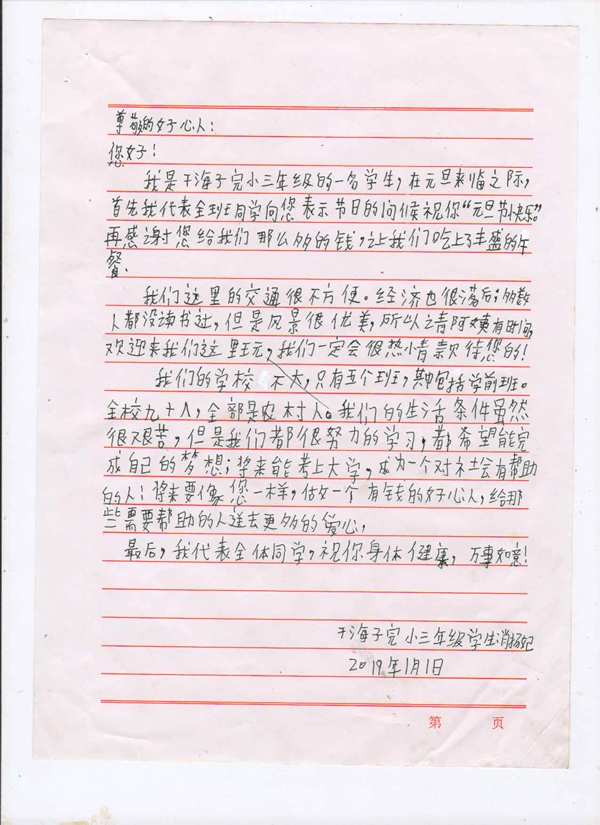 尊敬的好心人：
您好！
我是干海子完小三年级的一名学生，在元旦来临之际，
首先我代表全班同学向您表示节日的问候祝你“元旦节快乐”。
再感谢您给我们那么多的钱，让我们吃上了丰盛的午
餐。
我们这里的交通很不方便。经济也很落后；多数
人都没读书过，但是风景很优美，所以之青阿姨有时间
欢迎来我们这里玩，我们一定会很热情款待您的！
我们的学校不大，只有五个班，其中包括学前班。
全校九十人，全部是农村人。我们的生活条件虽然
很艰苦，但是我们都很努力的学习，都希望能完
成自己的梦想；将来能考上大学，成为一个对社会有帮助
的人；将来要像您一样，做一个有钱的好心人，给那
些需要帮助的人送去更多的爱心，
最后，我代表全体同学，祝你身体健康，万事如意！
干海子完小三年级学生肖杨
2019年1月1日
第 页